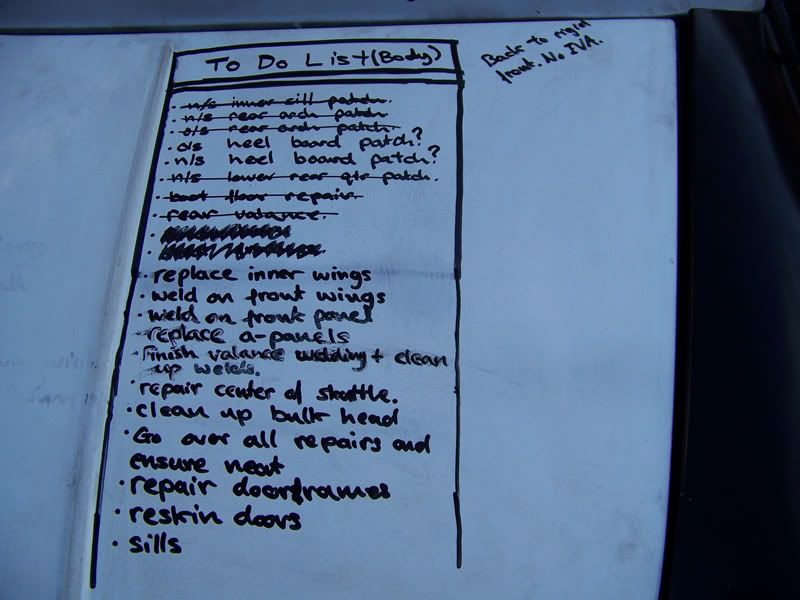 To Do List (Body)
Back to rigid
front. No IVA.
· n/s inner sill patch.
· n/s rear arch patch
· o/s rear arch patch.
· o/s heel board patch?
· n/s heel board patch?
· n/s lower rear qtr patch.
· boot floor repair.
· rear valance.
· replace inner wings
· weld on front wings
· weld on front panel
· replace a-panels
· Finish valance welding + clean
up welds.
· repair center of skuttle.
· clean up bulk head
· Go over all repairs and
ensure neat
· repair doorframes
· reskin doors
· sills